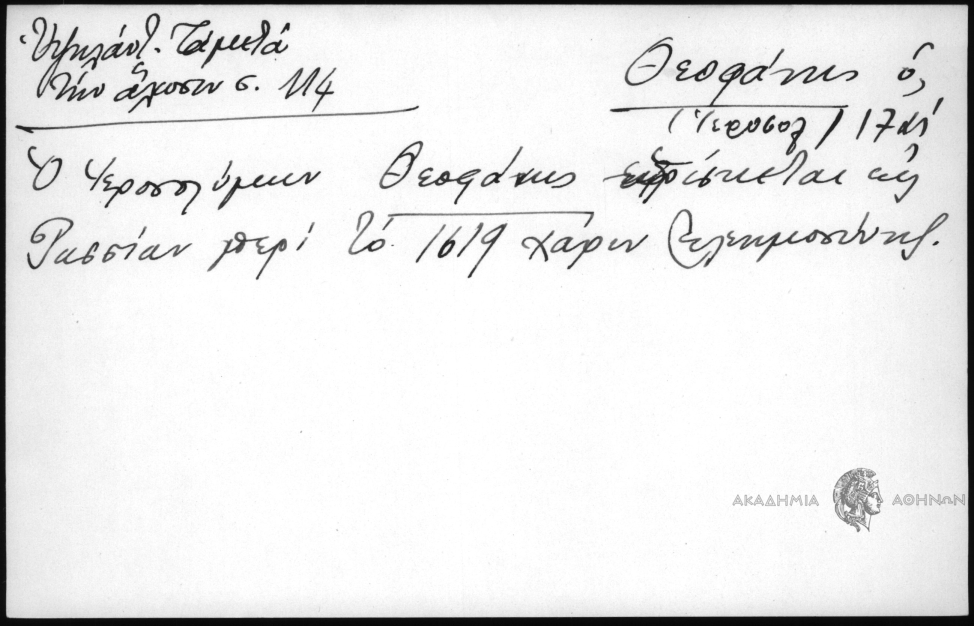 Ὑψηλάντ. Τά μετά
τήν ἅλωσιν σ. 114
Θεοφάνης ὁ,
(Ἱεροσολ) 17 αἰ
Ὁ Ἱεροσολύμων Θεοφάνης εὑρίσκεται εἰς
Ρωσσίαν περί τό 1619 χάριν ἐλεημοσύνης.
ΑΚΑΔΗΜΙΑ ΑΘΗΝΩΝ